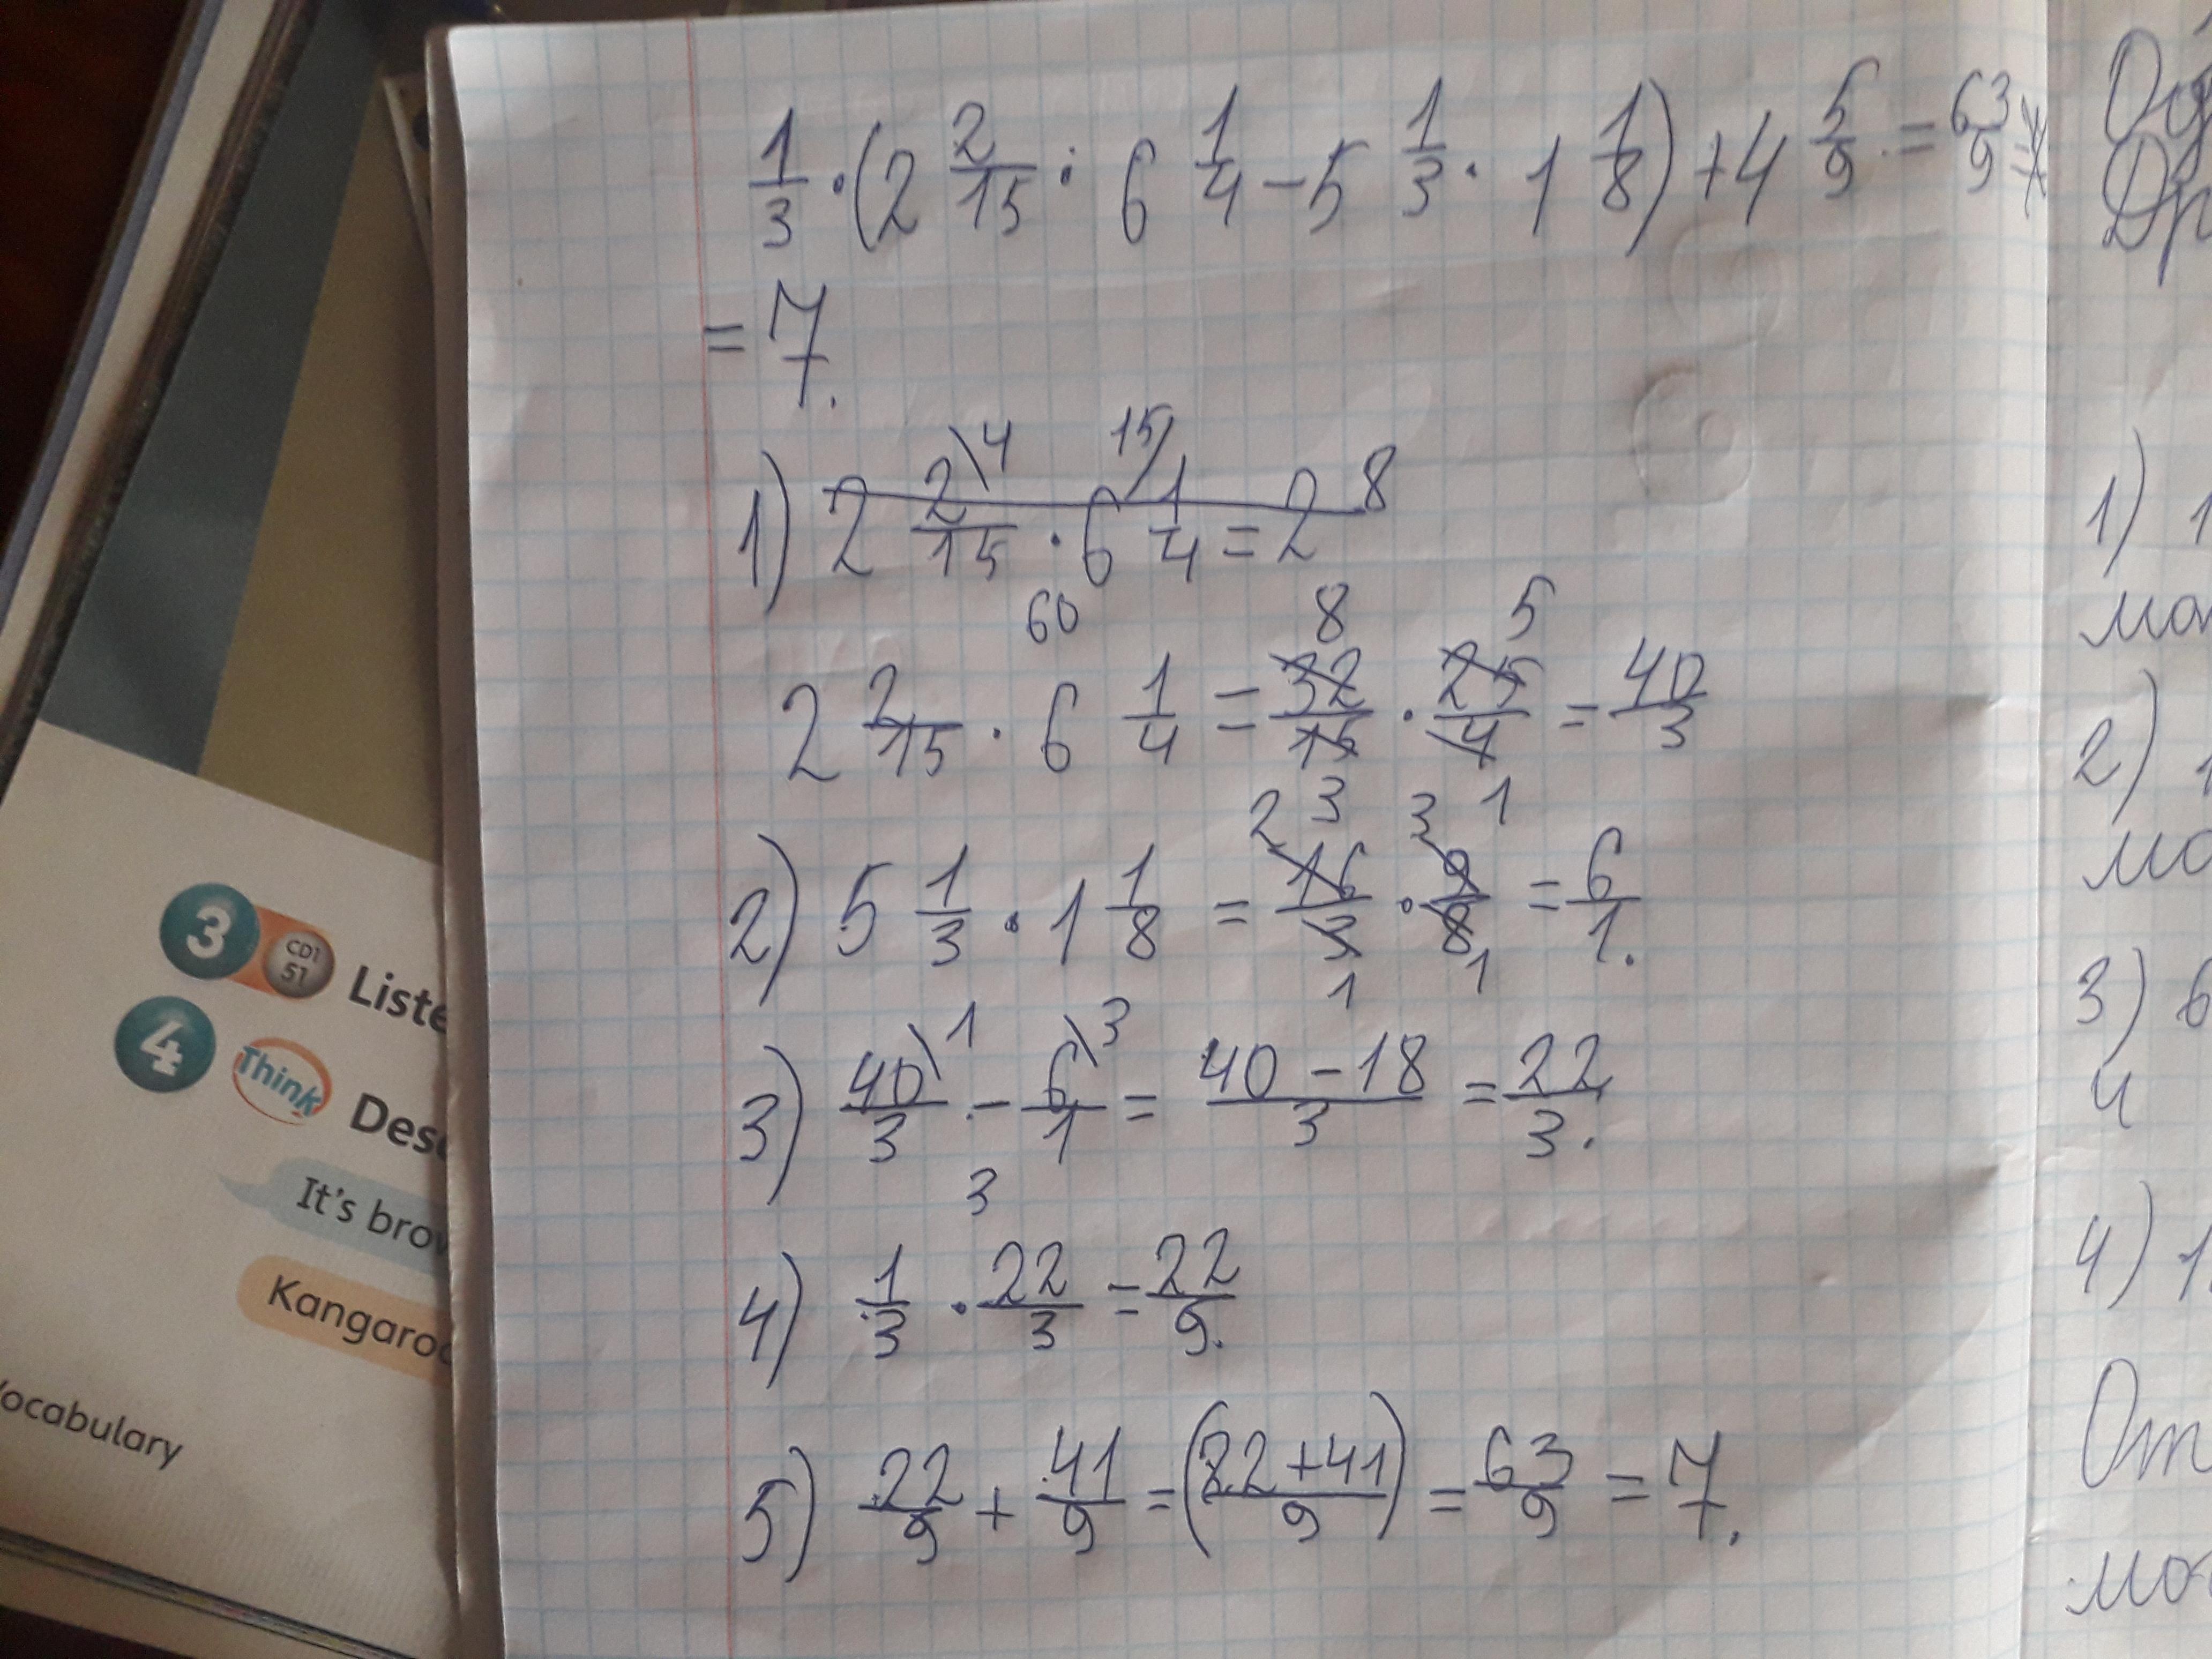 1/3 · (2 2/15 · 6 1/4 - 5 1/3 · 1 1/8) + 4 5/9 = 63/9
= 7.
1) 2 2\4/15 · 6 15/1/4 = 2 8
60
2 2/15 · 6 1/4 = 32/15 · 25/4 = 40/3
8 5
3 1
2) 5 1/3 · 1 1/8 = 16/3 · 9/8 = 6/1.
2 3
1 1
3) 40\1/3 - 6\3/1 = 40 - 18/3 = 22/3.
3
4) 1/3 · 22/3 = 22/9.
5) 22/9 + 41/9 = (22 + 41/9) = 63/9 = 7.
3 CD1 51 Liste
4 Think Des
It's brow
Kangaroo
ocabulary
1) 1
2) 1
3) 6
и
4) 1